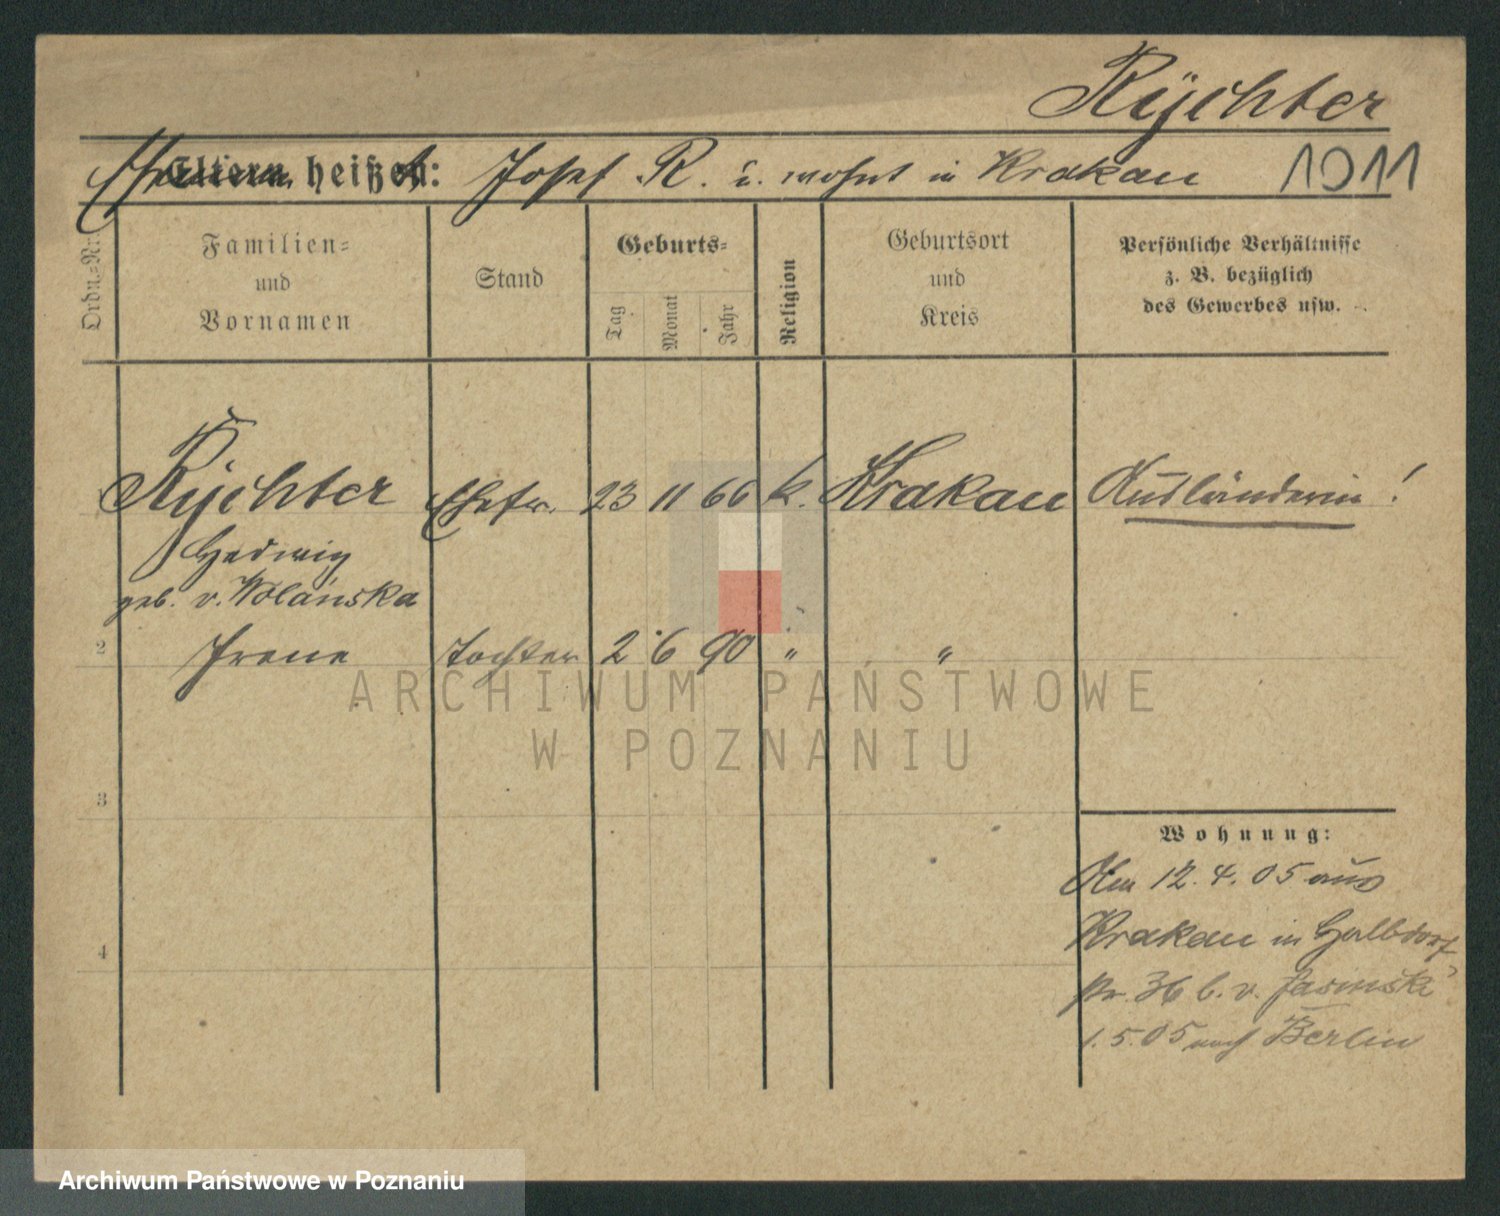 Rÿchter
Ehemann heißt: Josef R. u. wohnt in Krakau 1011
Ordn.=Nr.
Familien=
und
Vornamen
Stand
Geburts=
Tag
Monat
Jahr
Religion
Geburtsort
und
Kreis
Persönliche Verhältnisse
z. B. bezüglich
des Gewerbes usw.
Rÿchter Ehefr. 23 11 66 k. Krakau Ausländerin!
Hedwig
geb. v. Wolańska
2 Irene Tochter 2 6 90 " "
ARCHIWUM PAŃSTWOWE
W POZNANIU
3
Wohnung:
Am 12.4.05 aus
Krakau in Halbdorf
str. 36 b. v. Jasinski
1.5.05 nach Berlin
4
Archiwum Państwowe w Poznaniu